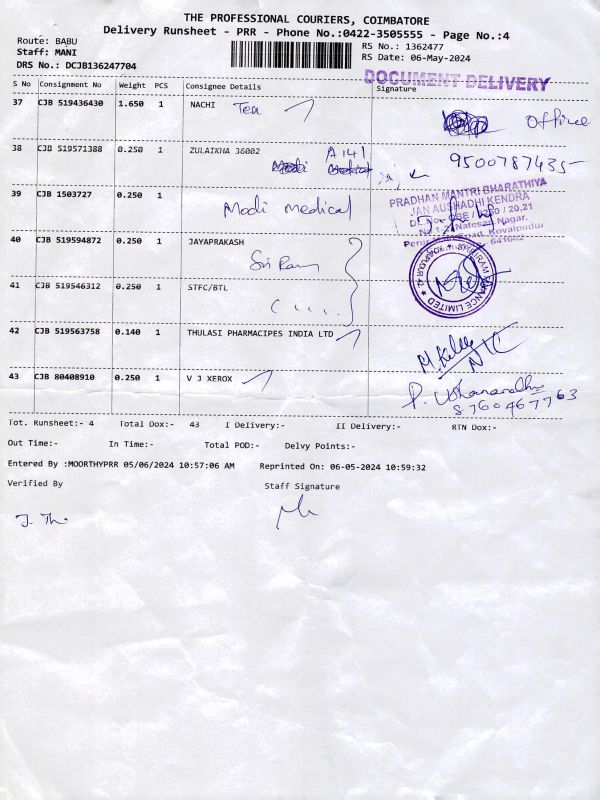 THE PROFESSIONAL COURIERS, COIMBATORE
Delivery Runsheet - PRR - Phone No.:0422-3505555 - Page No.:4
Route: BABU
Staff: MANI
DRS No.: DCJB136247704
RS No.: 1362477
RS Date: 06-May-2024
DOCUMENT DELIVERY
S No Consignment No Weight PCS Consignee Details Signature
37 CJB 519436430 1.650 1 NACHI Tea Office
38 CJB 519571388 0.250 1 ZULAIKHA 36002 A141 9500787435
39 CJB 1503727 0.250 1 Modi medical
PRADHAN MANTRI BHARATHIYA
JAN AUSHADHI KENDRA
Natesan Nagar,
Kovaipudur
641042
40 CJB 519594872 0.250 1 JAYAPRAKASH Sri Ram
41 CJB 519546312 0.250 1 STFC/BTL
42 CJB 519563758 0.140 1 THULASI PHARMACIPES INDIA LTD
43 CJB 80408910 0.250 1 V J XEROX
8760467763
Tot. Runsheet:- 4 Total Dox:- 43 I Delivery:- II Delivery:- RTN Dox:-
Out Time:- In Time:- Total POD:- Delvy Points:-
Entered By :MOORTHYPRR 05/06/2024 10:57:06 AM Reprinted On: 06-05-2024 10:59:32
Verified By Staff Signature